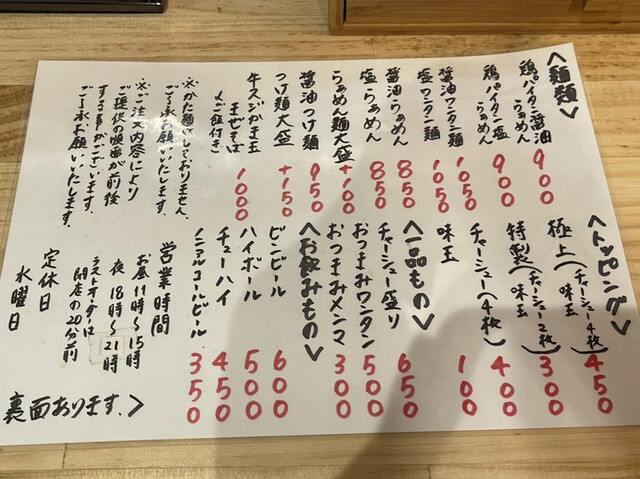 〈麺類〉
鶏パイタン醤油らぁめん 900
鶏パイタン塩らぁめん 900
醤油ワンタン麺 1050
塩ワンタン麺 1050
醤油らぁめん 850
塩らぁめん 850
らぁめん麺大盛 +100
醤油つけ麺 950
つけ麺大盛 +150
牛スジかま玉まぜそば
〆ご飯付き 1000
※かた麺はしておりません。
ご了承お願いいたします。
※ご注文内容により
ご提供の順番が前後
する事がございます。
ご了承お願いいたします。
〈トッピング〉
極上(チャーシュー4枚、味玉) 450
特製(チャーシュー2枚、味玉) 300
チャーシュー(4枚) 400
味玉 100
〈一品もの〉
チャーシュー盛り 650
おつまみワンタン 500
おつまみメンマ 300
〈お飲みもの〉
ビンビール 600
ハイボール 500
チューハイ 450
ノンアルコールビール 350
営業時間
お昼11時〜15時
夜 18時〜21時
ラストオーダーは
閉店の20分前
定休日
水曜日
裏面あります。>